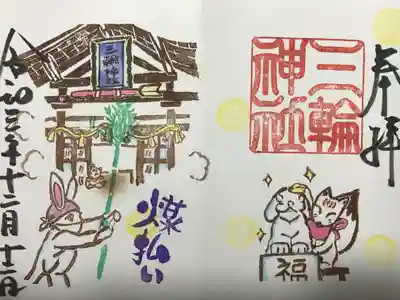 奉拝
三輪
神社
福
三輪神社
煤払い
令和三年十二月